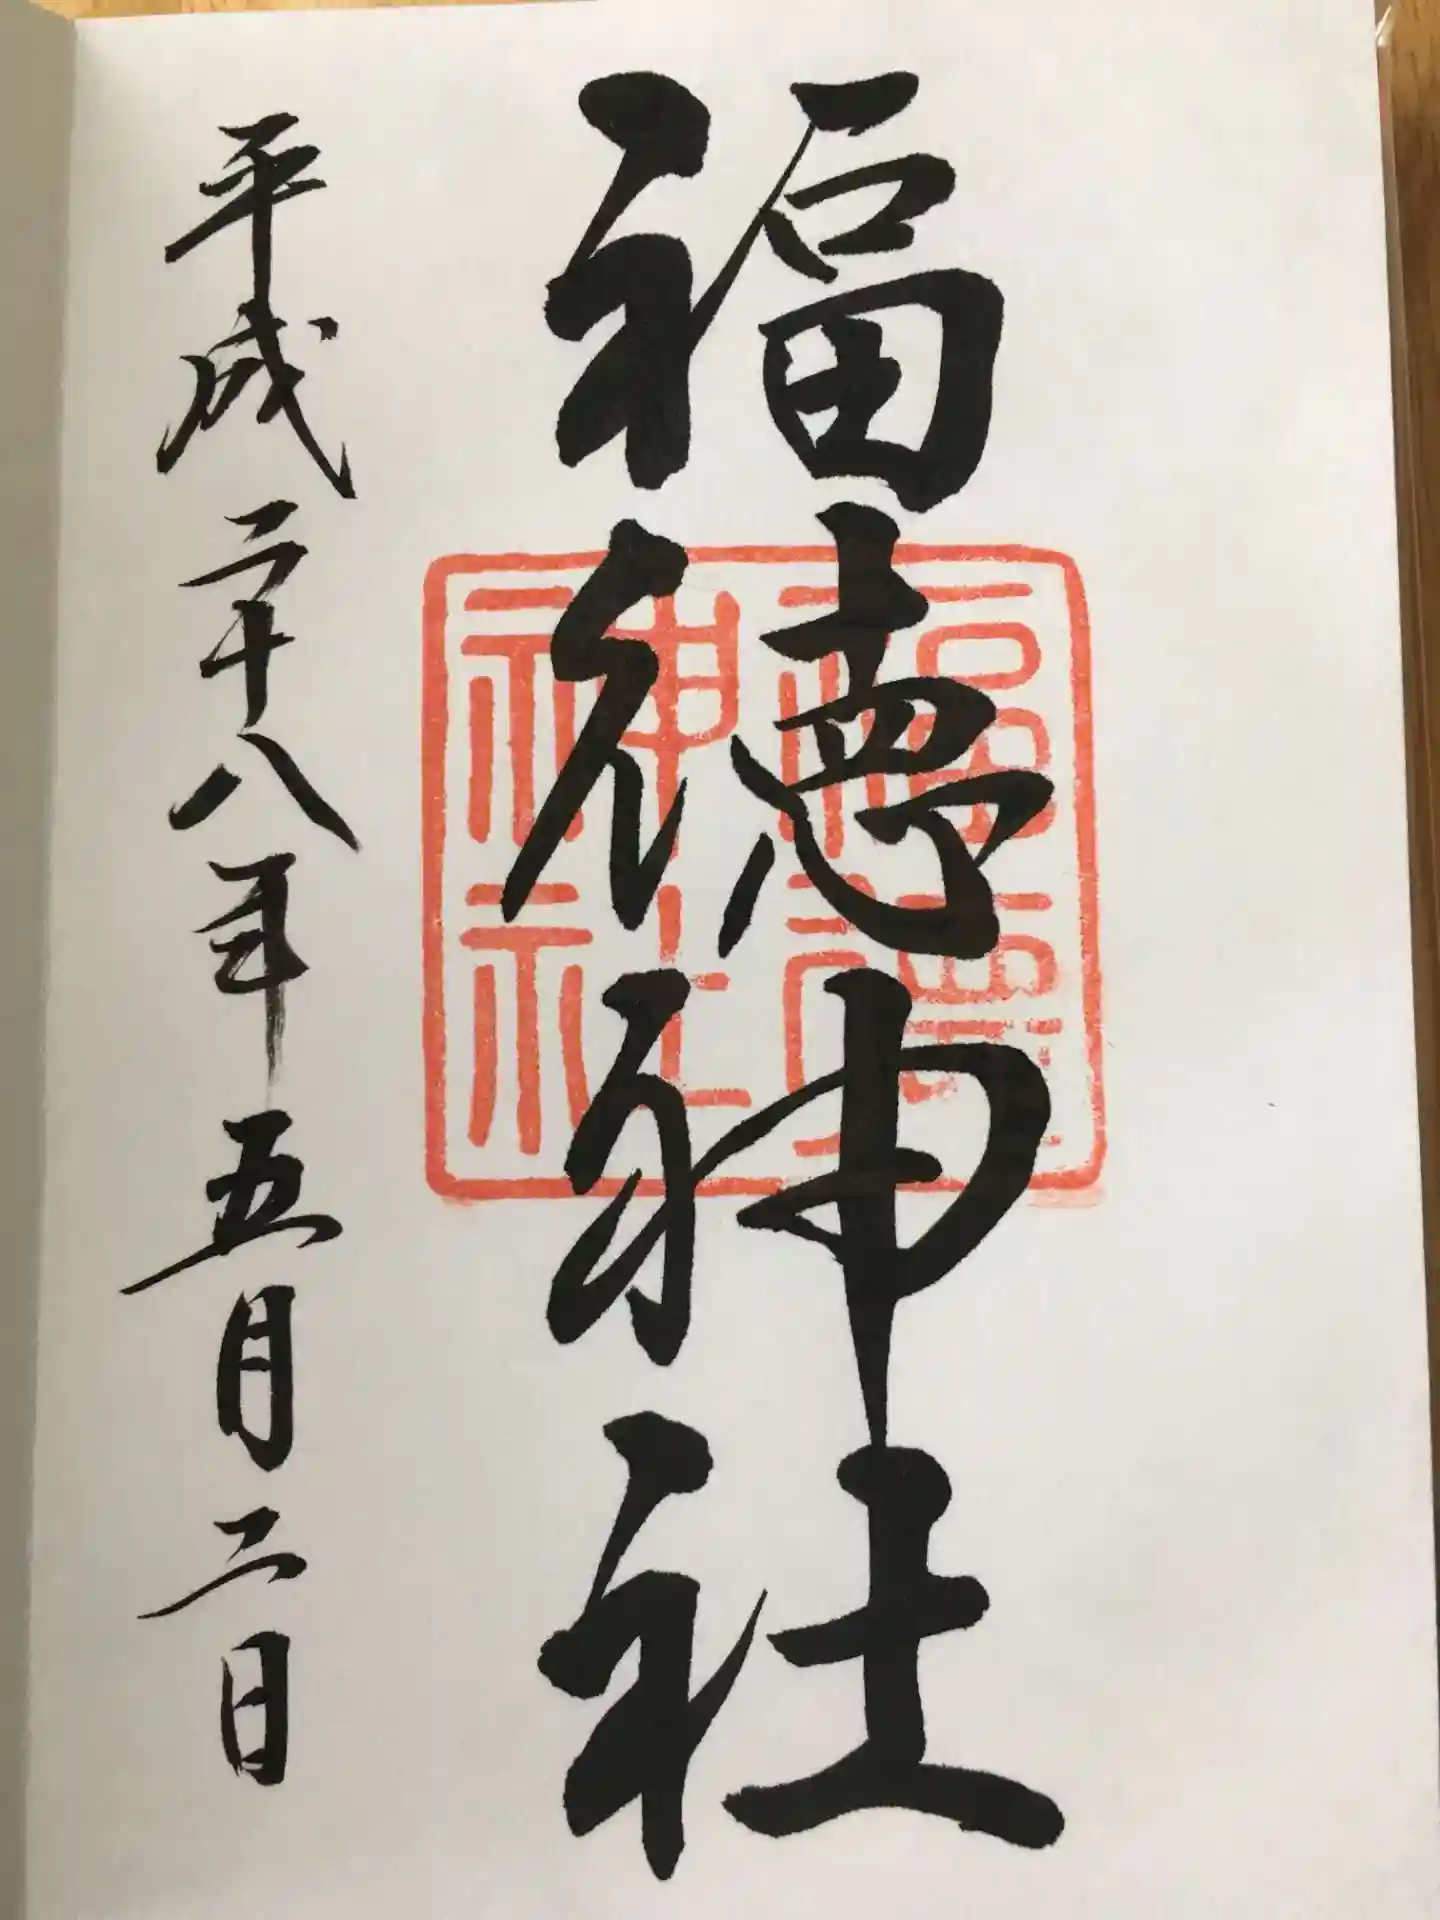 福徳神社
福徳神社
平成二十八年五月二日